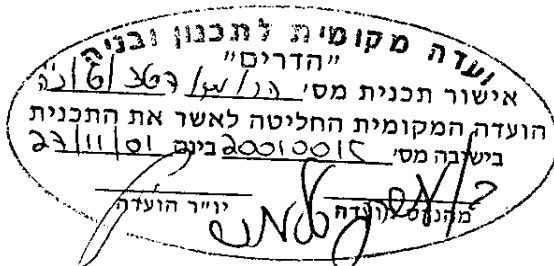 ועדה מקומית לתכנון ובניה
"הדרים"
אישור תכנית מס' הר/מק/367/6/ג'ה
הועדה המקומית החליטה לאשר את התכנית
בישיבה מס' 20010015 ביום 27/11/01
מהנדס הועדה יו"ר הועדה